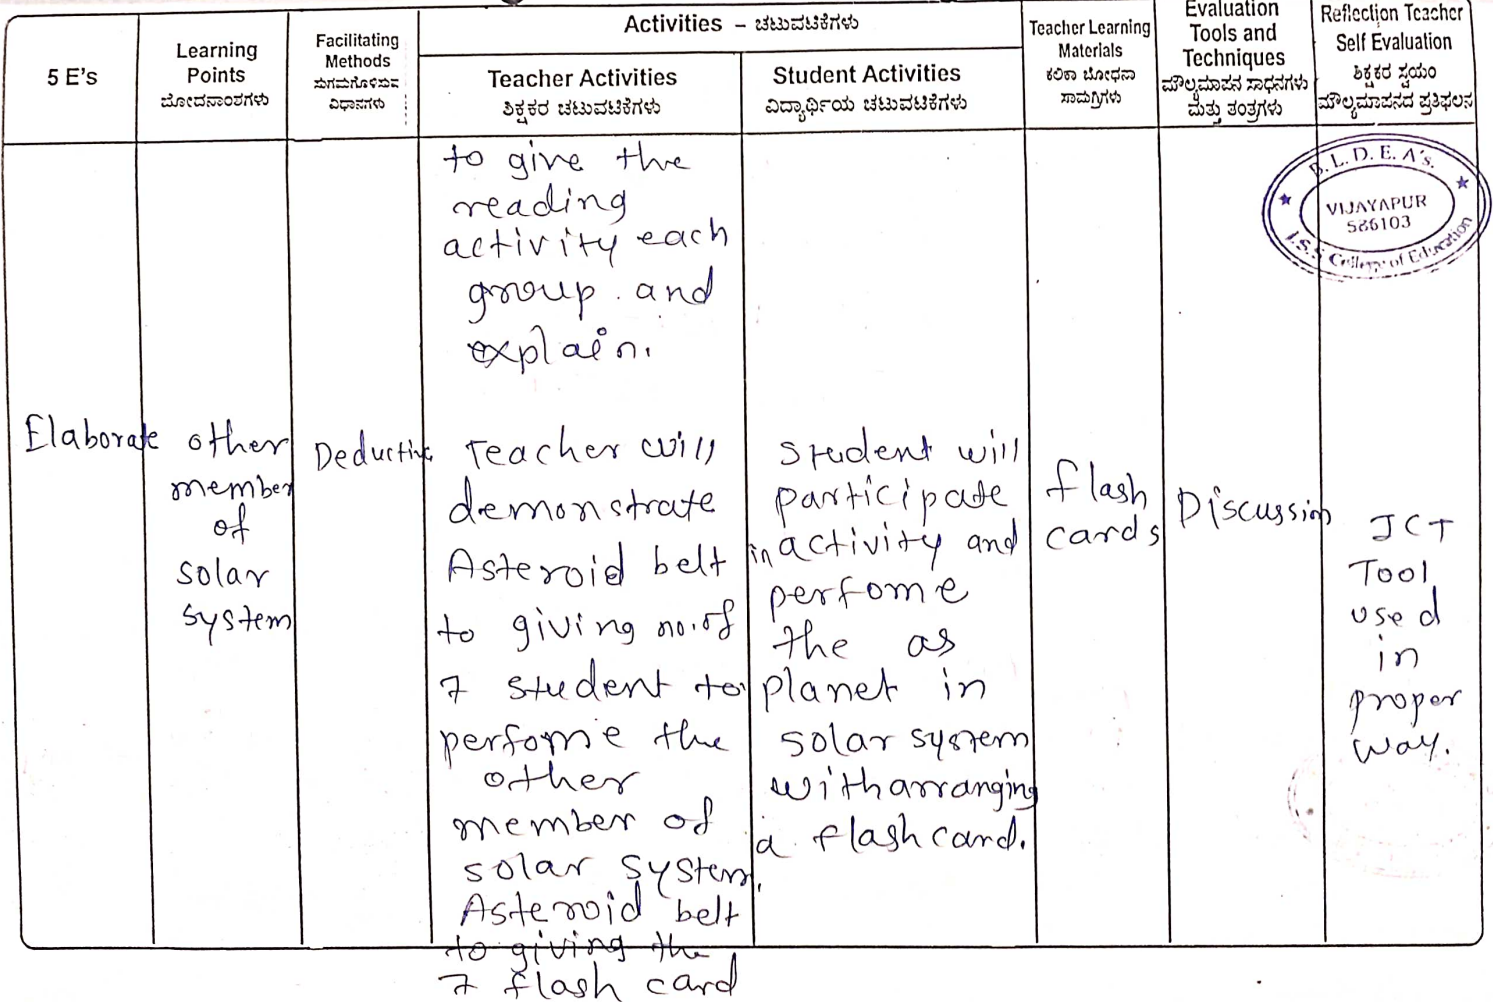 5 E's
Learning
Points
ಬೋದನಾಂಶಗಳು
Facilitating
Methods
ಸುಗಮಗೊಳಿಸುವ
ವಿಧಾನಗಳು
Activities – ಚಟುವಟಿಕೆಗಳು
Teacher Activities
ಶಿಕ್ಷಕರ ಚಟುವಟಿಕೆಗಳು
Student Activities
ವಿದ್ಯಾರ್ಥಿಯ ಚಟುವಟಿಕೆಗಳು
Teacher Learning
Materials
ಕಲಿಕಾ ಬೋಧನಾ
ಸಾಮಗ್ರಿಗಳು
Evaluation
Tools and
Techniques
ಮೌಲ್ಯಮಾಪನ ಸಾಧನಗಳು
ಮತ್ತು ತಂತ್ರಗಳು
Reflection Teacher
Self Evaluation
ಶಿಕ್ಷಕರ ಸ್ವಯಂ
ಮೌಲ್ಯಮಾಪನದ ಪ್ರತಿಫಲನ
to give the
reading
activity each
group. and
explain.
B.L.D.E.A's.
VIJAYAPUR
586103
J.S.S College of Education
Elaborate
other
member
of
solar
system
Deductive
Teacher will
demonstrate
Asteroid belt
to giving no.of
7 student to
perfome the
other
member of
solar system.
Asteroid belt
to giving the
7 flash card
Student will
participate
in activity and
perfome
the as
planet in
solar system
with arranging
a flash card.
flash
cards
Discussion
JCT
Tool
used
in
proper
way.